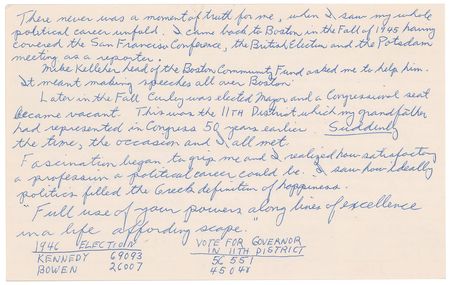 There never was a moment of truth for me, when I saw my whole
political career unfold. I came back to Boston in the Fall of 1945 having
covered the San Francisco Conference, the British Election and the Potsdam
meeting as a reporter.
Mike Kelleher, head of the Boston Community Fund asked me to help him.
It meant making speeches all over Boston.
Later in the Fall Curley was elected Mayor and a Congressional seat
became vacant. This was the 11TH District which my grandfather
had represented in Congress 50 years earlier. Suddenly
the time, the occasion and I all met.
Fascination began to grip me and I realized how satisfactory
a profession a political career could be. I saw how ideally
politics filled the Greeks definition of happiness.
"Full use of your powers along lines of excellence
in a life affording scope."
1946 ELECTION VOTE FOR GOVERNOR
IN 11TH DISTRICT
KENNEDY 69093 56 551
BOWEN 26007 45048